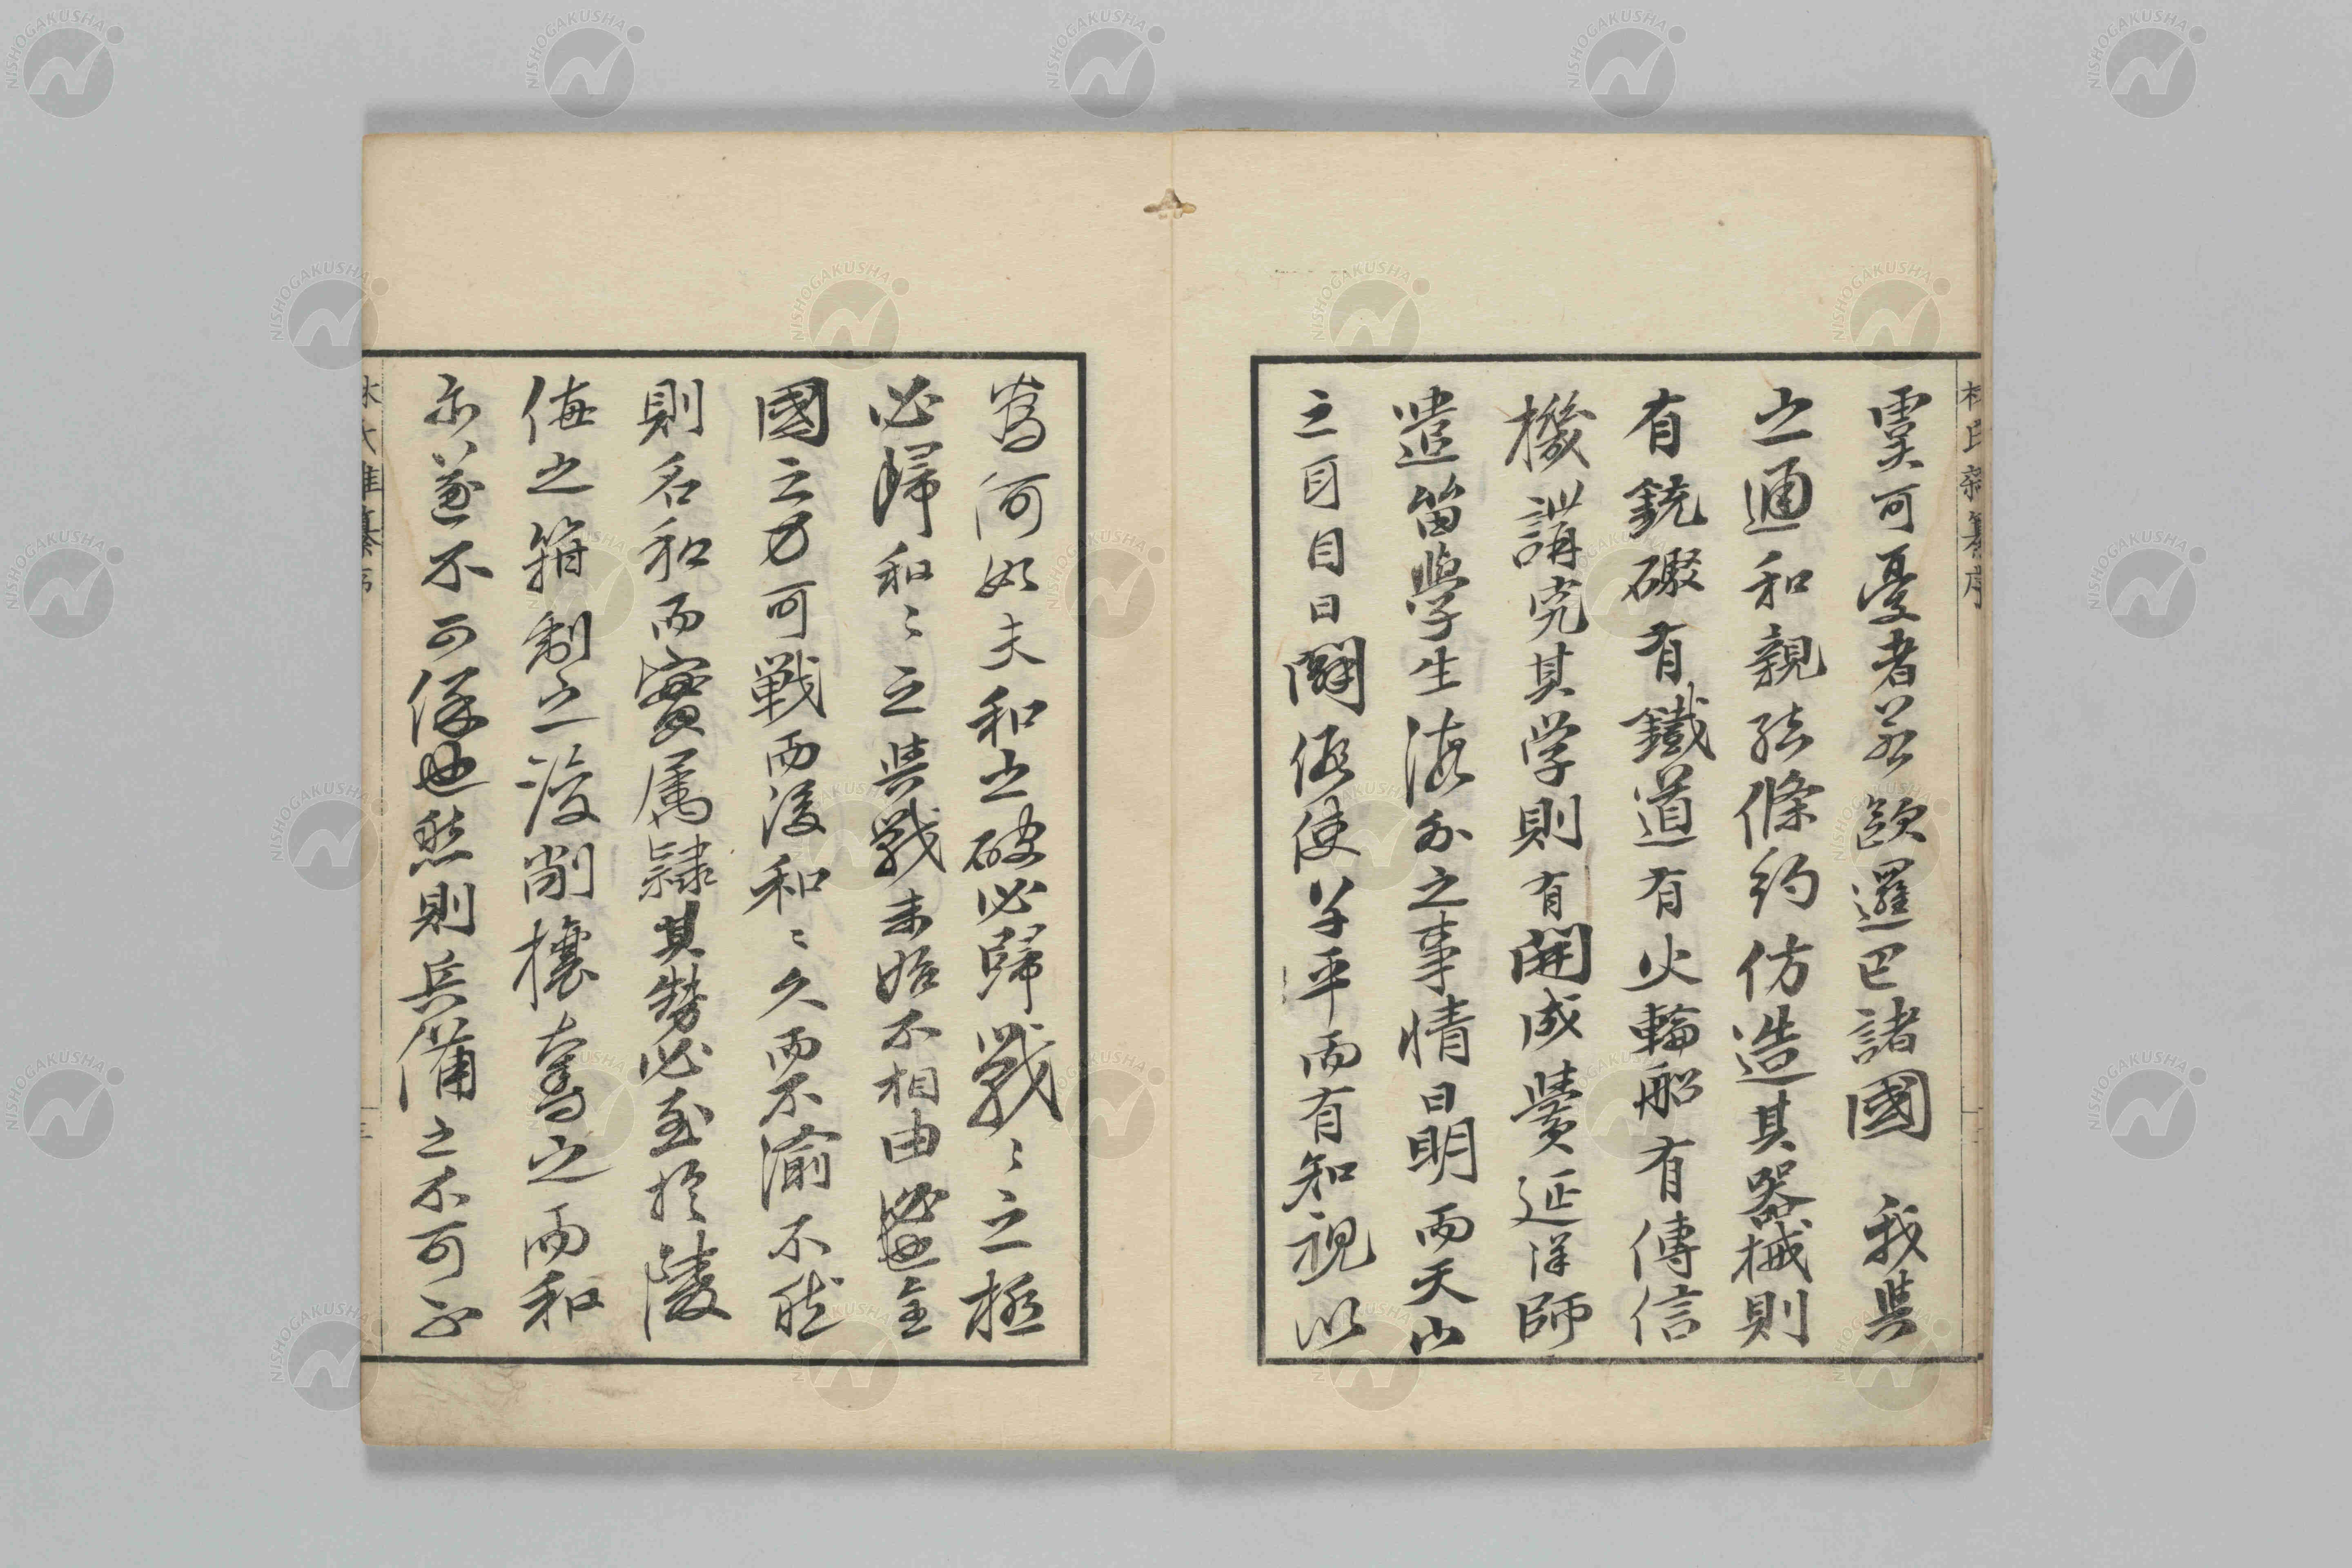 虞可憂者若歐邏巴諸國我與
之通和親結條約仿造其器械則
有銃礟有鐵道有火輪船有傳信
機講究其学則有開成黌延洋師
遣留學生海外之事情日明而天山
之目日闢假使羊平而有知視以
為何如夫和之破必歸戰〻之極
必歸和〻之與戰未始不相由必也全
國之力可戦而後和〻久而不渝不然
則名和而實属隷其勢必至於陵
侮之箝制之浚削攘奪之而和
亦遂不可保也然則兵備之不可不
林氏雜纂序
NISHOGAKUSHA